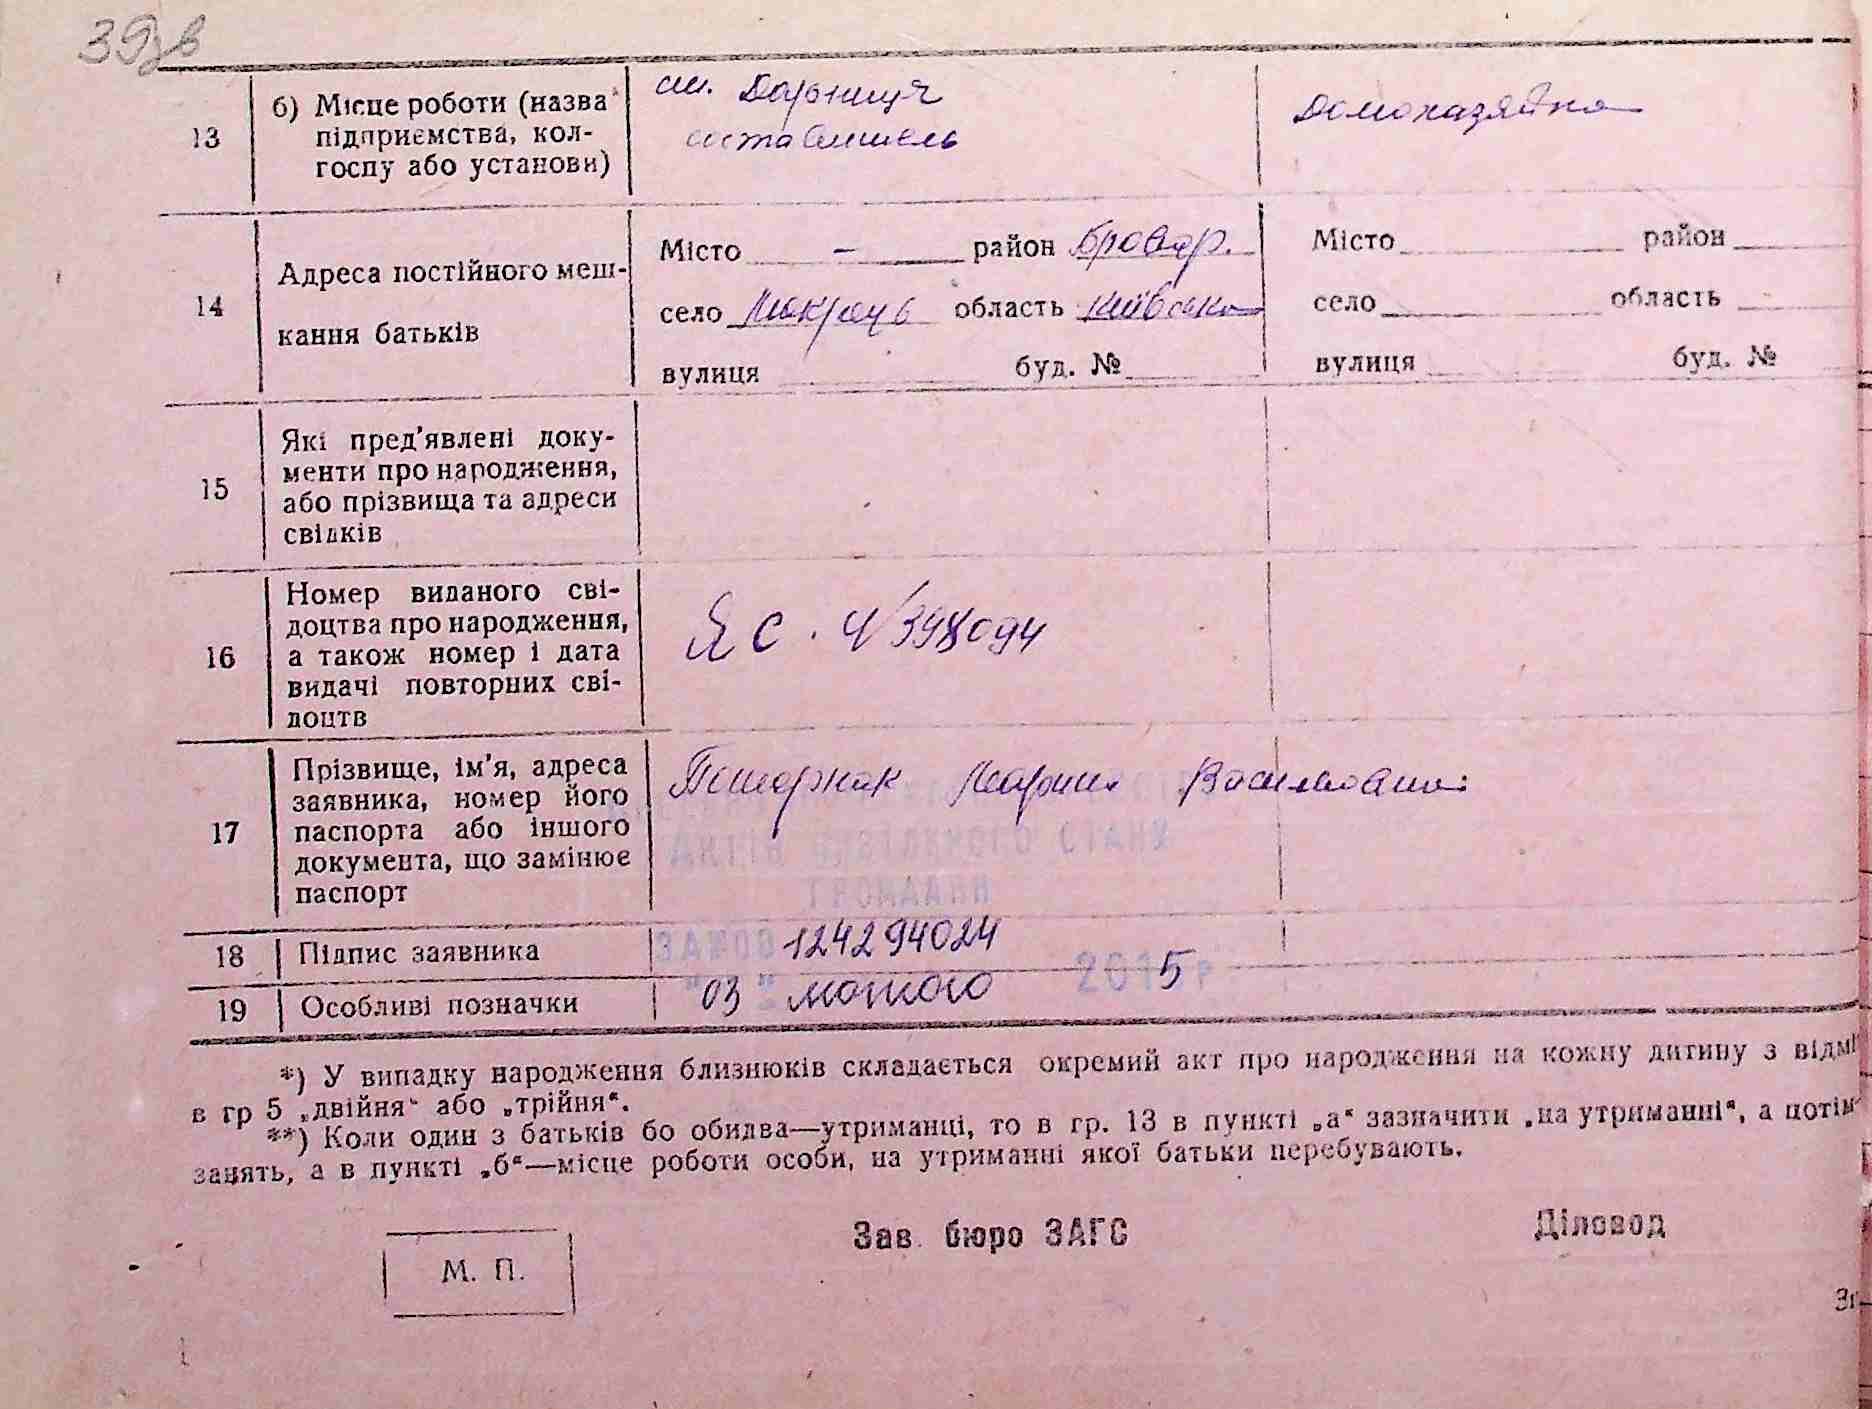 39зв
13
б) Місце роботи (назва
підприємства, кол-
госпу або установи)
ст. Дарниця
составитель
Домохазяйка
14
Адреса постійного меш-
кання батьків
Місто - район Бровар.
село Мокрець область Київська
вулиця буд. №
Місто район
село область
вулиця буд. №
15
Які пред'явлені доку-
менти про народження,
або прізвища та адреси
свідків
16
Номер виданого сві-
доцтва про народження,
а також номер і дата
видачі повторних сві-
доцтв
ЯС. № 398094
17
Прізвище, ім'я, адреса
заявника, номер його
паспорта або іншого
документа, що замінює
паспорт
Марина Васильовна
АКТІВ ЦИВІЛЬНОГО СТАНУ
ГРОМАДЯН
18 Підпис заявника
124294024
19 Особливі позначки
"03" лютого 2015 р
*) У випадку народження близнюків складається окремий акт про народження на кожну дитину з відмі
в гр 5 „двійня“ або „трійня“.
**) Коли один з батьків бо обидва—утриманці, то в гр. 13 в пункті „а“ зазначити „на утриманні“, а потім
занять, а в пункті „б“—місце роботи особи, на утриманні якої батьки перебувають.
М. П.
Зав. бюро ЗАГС
Діловод